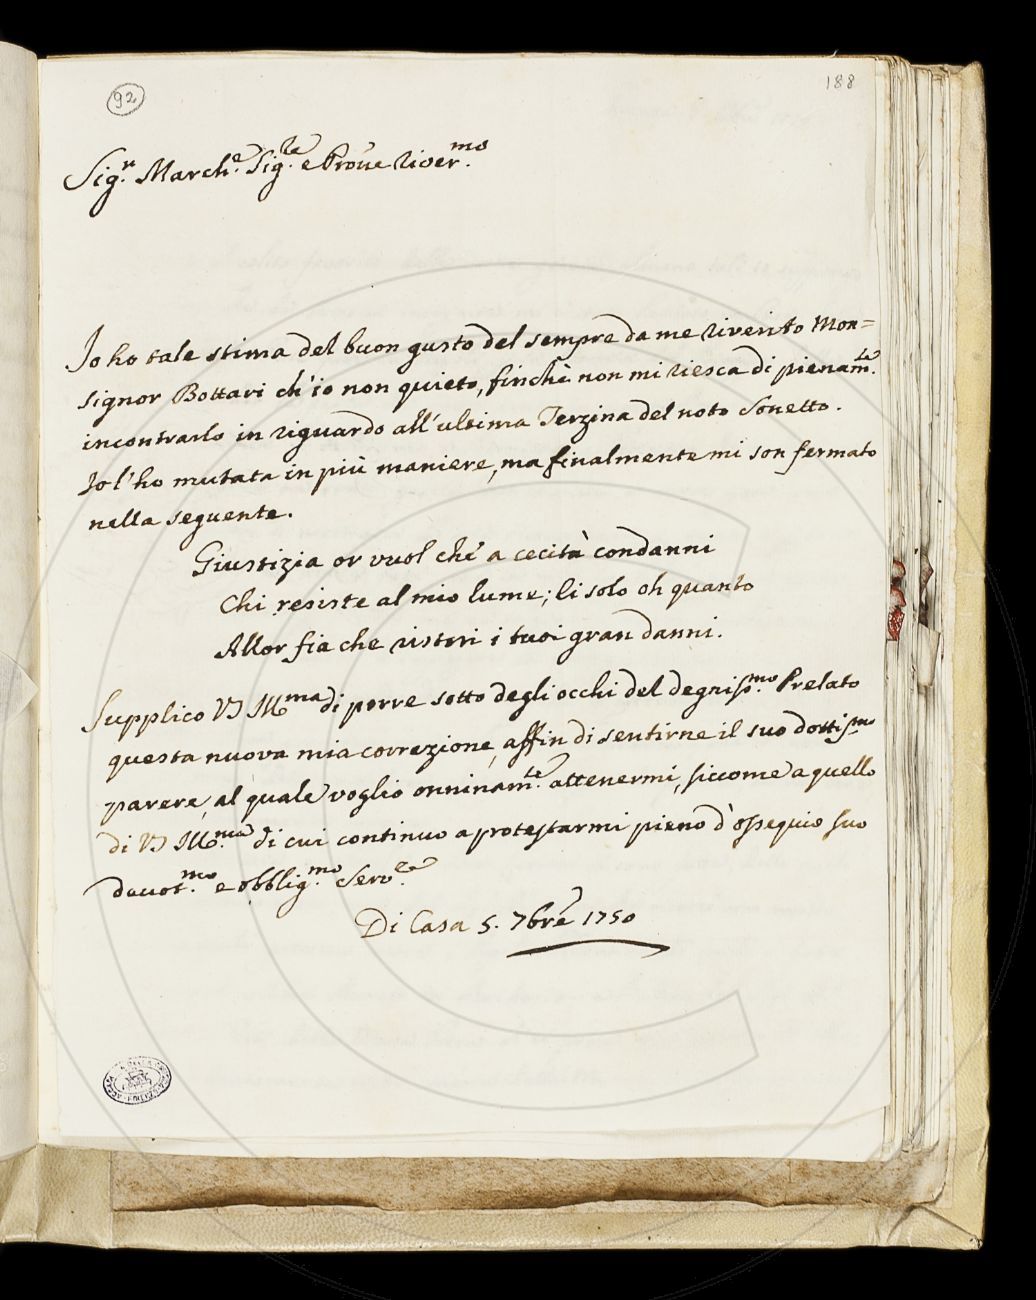 92
188
Sig.r March.e Sig.re e Prōne River.mo
Io ho tale stima del buon gusto del sempre da me riverito Mon=
signor Bottari ch'io non quieto, finchè non mi riesca di pienam.te
incontrarlo in riguardo all'ultima Terzina del noto Sonetto.
Io l'ho mutata in più maniere, ma finalmente mi son fermato
nella seguente.
Giustizia or vuol che a cecità condanni
Chi resiste al mio lume; li solo oh quanto
Allor fia che ristori i tuoi gran danni.
Supplico VS Ill.ma di porre sotto degli occhi del degniss.mo Prelato
questa nuova mia correzione, affin di sentirne il suo dottiss.mo
parere, al quale voglio onninam.te attenermi, siccome a quello
di VS Ill.ma di cui continuo a protestarmi pieno d'ossequio suo
devot.mo e obblig.mo Serv.re
Di Casa 5. 7bre 1750